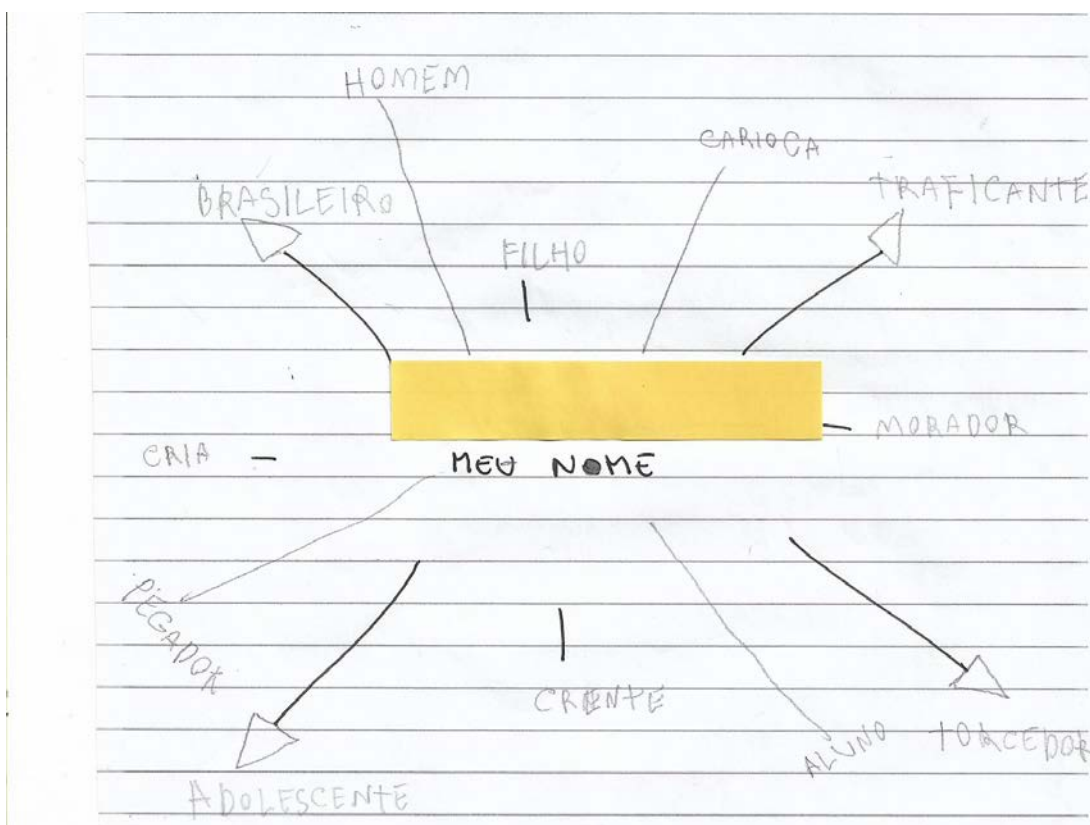 HOMEM
CARIOCA
BRASILEIRO
TRAFICANTE
FILHO
MORADOR
CRIA
MEU NOME
PEGADOR
CRENTE
ALUNO
TORCEDOR
ADOLESCENTE